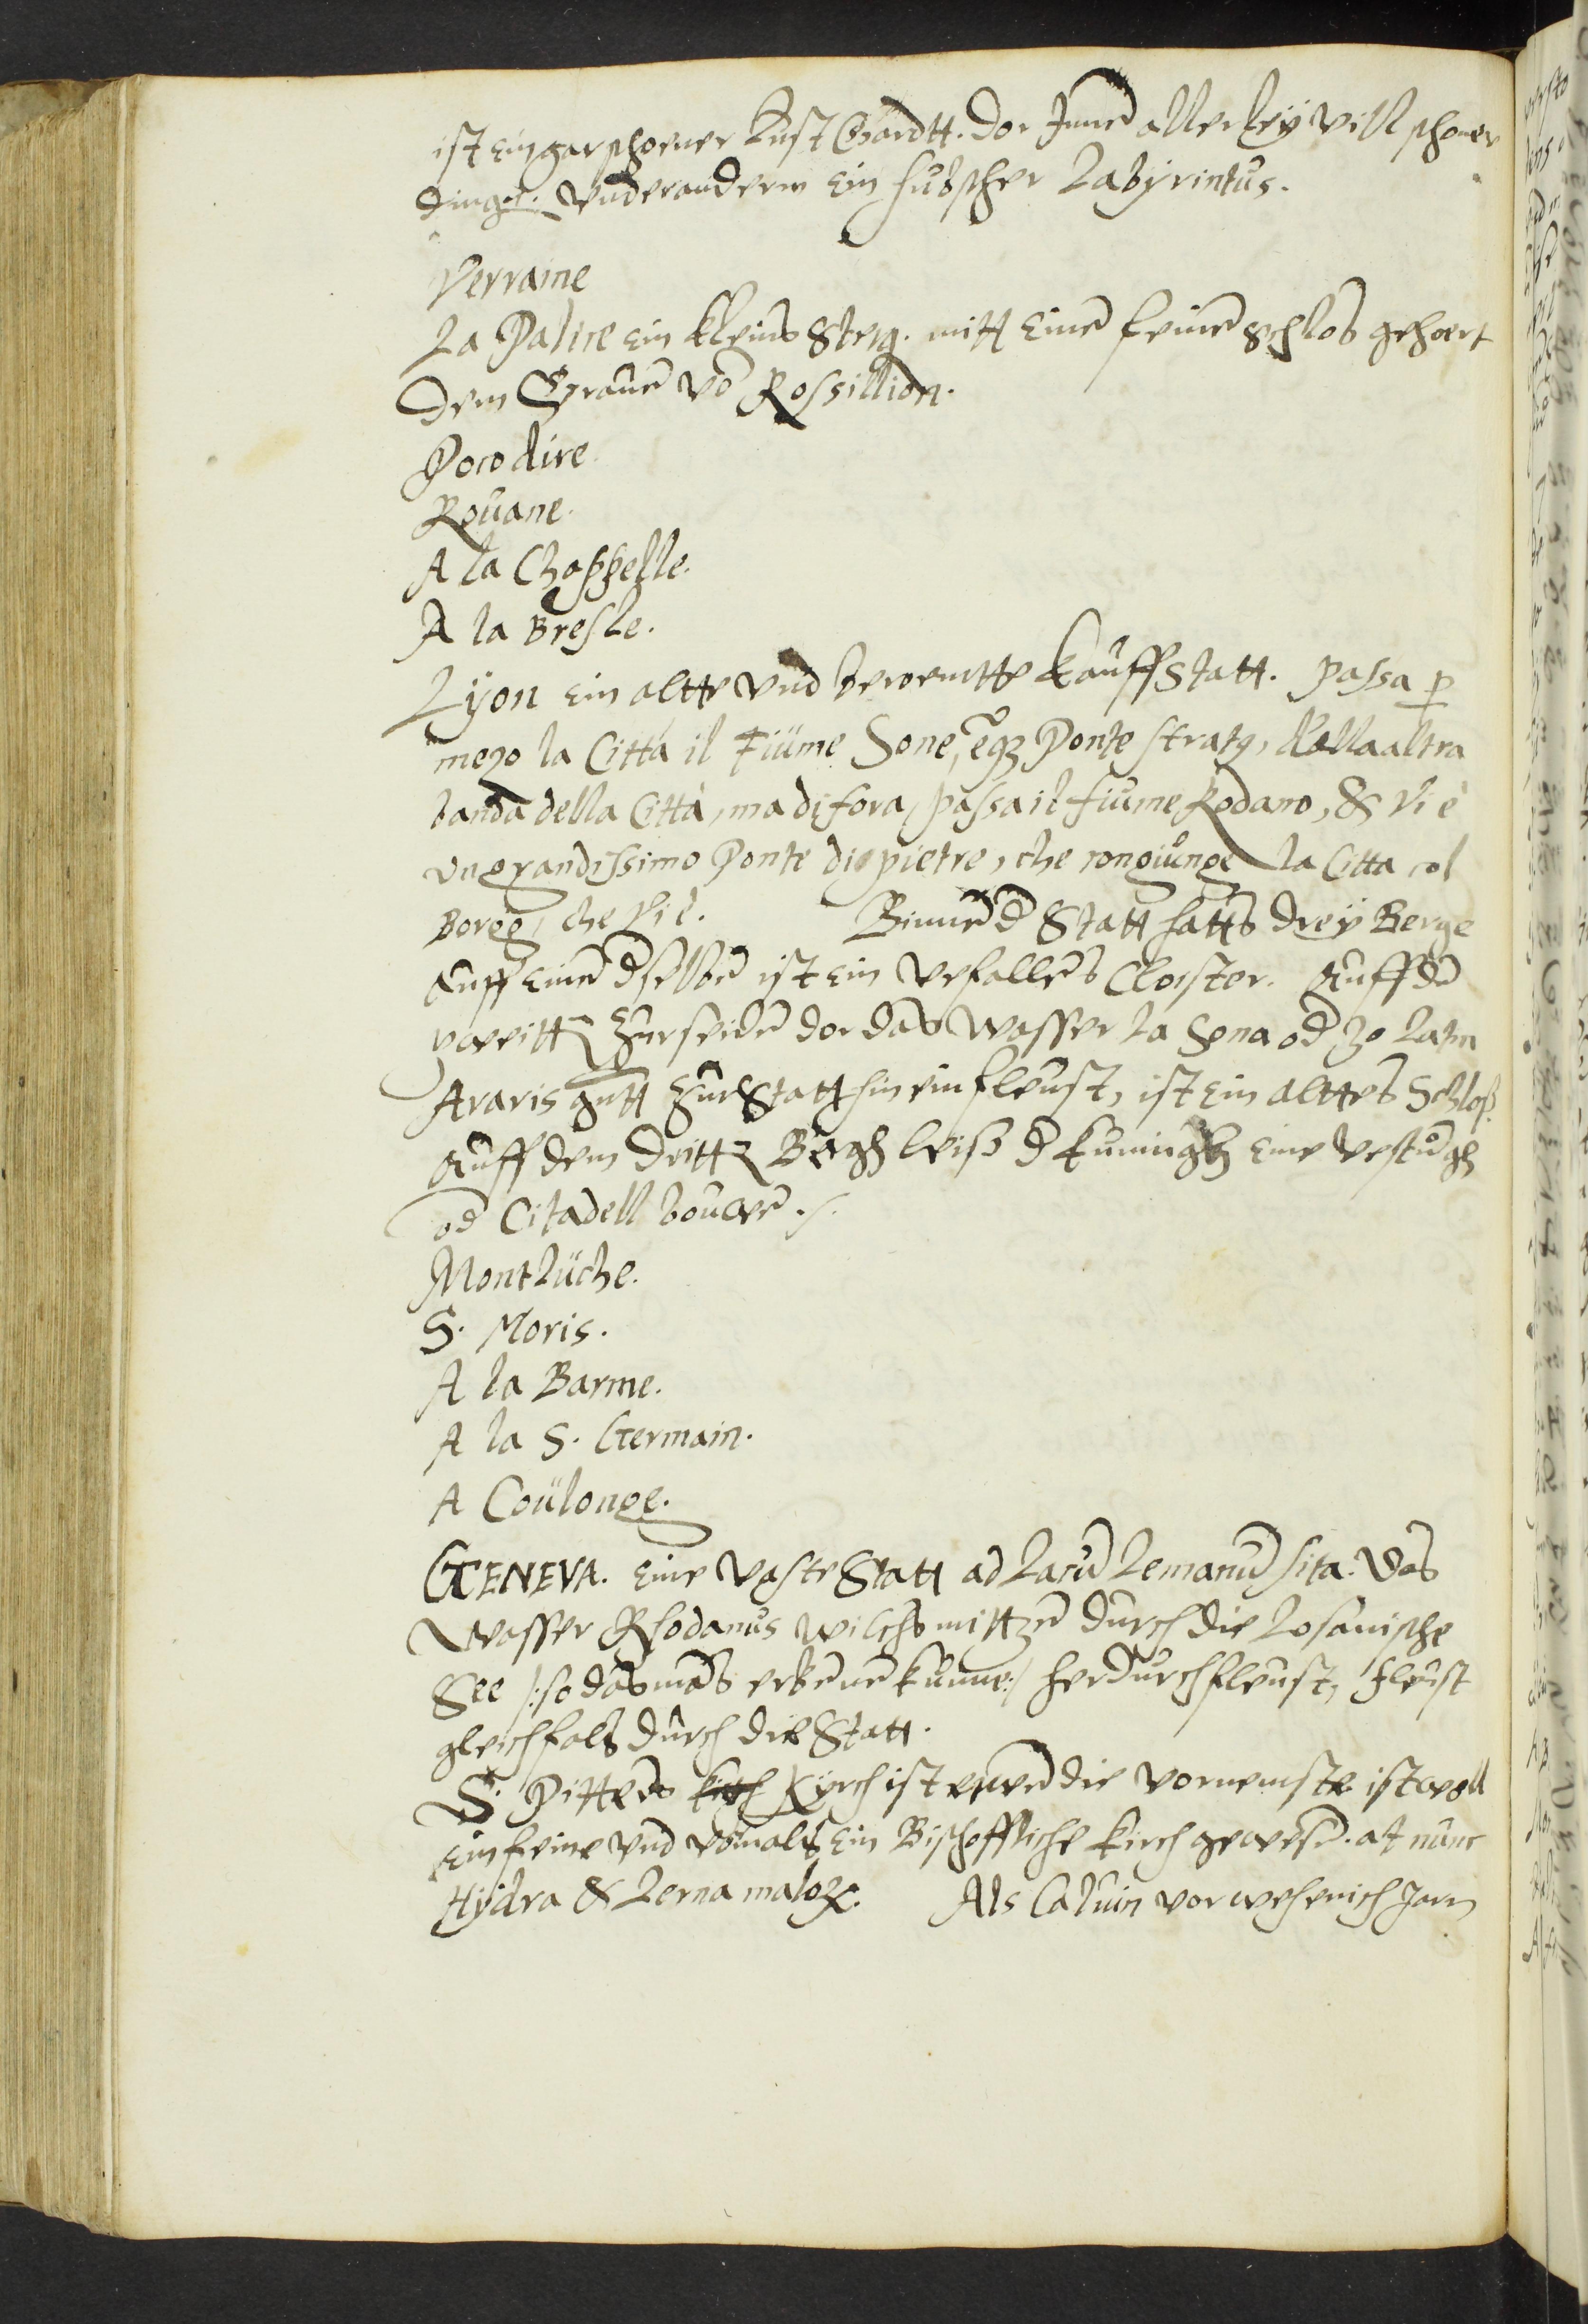 ist ein gar schoener Lust Gardtt. dor Innē allerleÿ vill schoner
dinge. Vnder andern Ein hubscher Labÿrintus.
Verraine
La Palire ein kleins Steig. mitt Einē feinē schlos gehoert
dem Grauē vō Rossillion.
Pocodire.
Rouane.
A la Chappelle.
A la Bresle.
Lÿon ein altte vnd beroemtte kauffstatt. passa p
mezo la Città il Fiüme Sone, Ponte stratꝰ, dalla altra
banda della Città, ma di fora, passa il fiume Rodano, & vi è
un grandissimo Ponte di pietre, che rongiunge la Citta col
Borgo, che vi è. Binnē d Statt hatts dreÿ Berge
auff einē dselbē ist ein vefallēs Closter. Auff dē
zur seidē dor das Wasser la Sona od zo Latin
Araris gutt zur Statt hinein fleust, ist Ein alttes Schloß.
Auff dem dritt Bergh leiß d kuningh Eine vestugh
od Citadell bouwē.
Montlüche.
S. Moris.
A la Barme.
A la S. Germain.
A Coülonge.
GENEVA. Eine vaste Statt ad Lacū Lemanū sita. Das
Wasser Rhodanus wilchs mittzē durch die Losanische
See /: so das mās erkēnē kunne :/ herdurchfleust, fleust
gleichfals durch die Statt.
S. Pitters Kÿrch ist die vornemste ist woll
Ein feine vnd vormals Ein Bischoffliche kirch gewesē. at nunc
Hÿdra & Lerna maloꝝ. Als Caluin vor wehenich Jarn